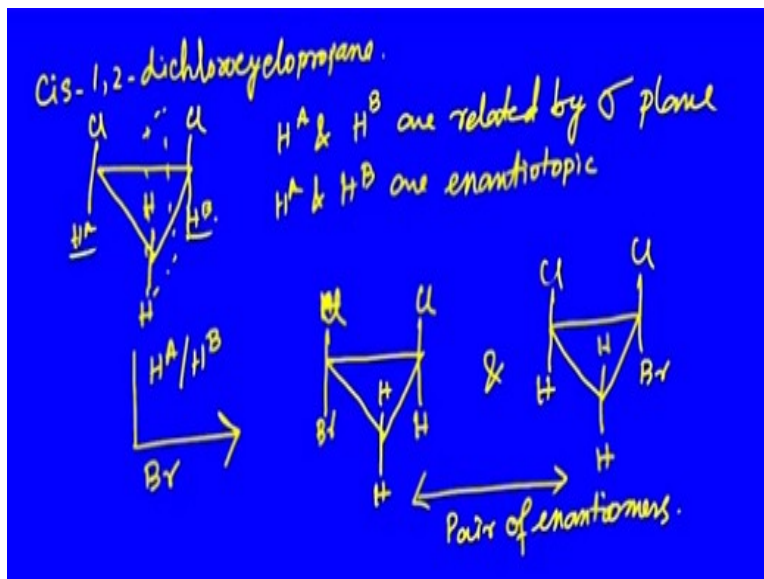 Cis-1,2-dichlorocyclopropane.
Cl Cl
H^A & H^B are related by σ plane
H^A & H^B are enantiotopic
H
H^A H^B.
H
H^A/H^B
Br
Cl Cl
H
Br H
H
&
Cl Cl
H
H Br
H
Pair of enantiomers.